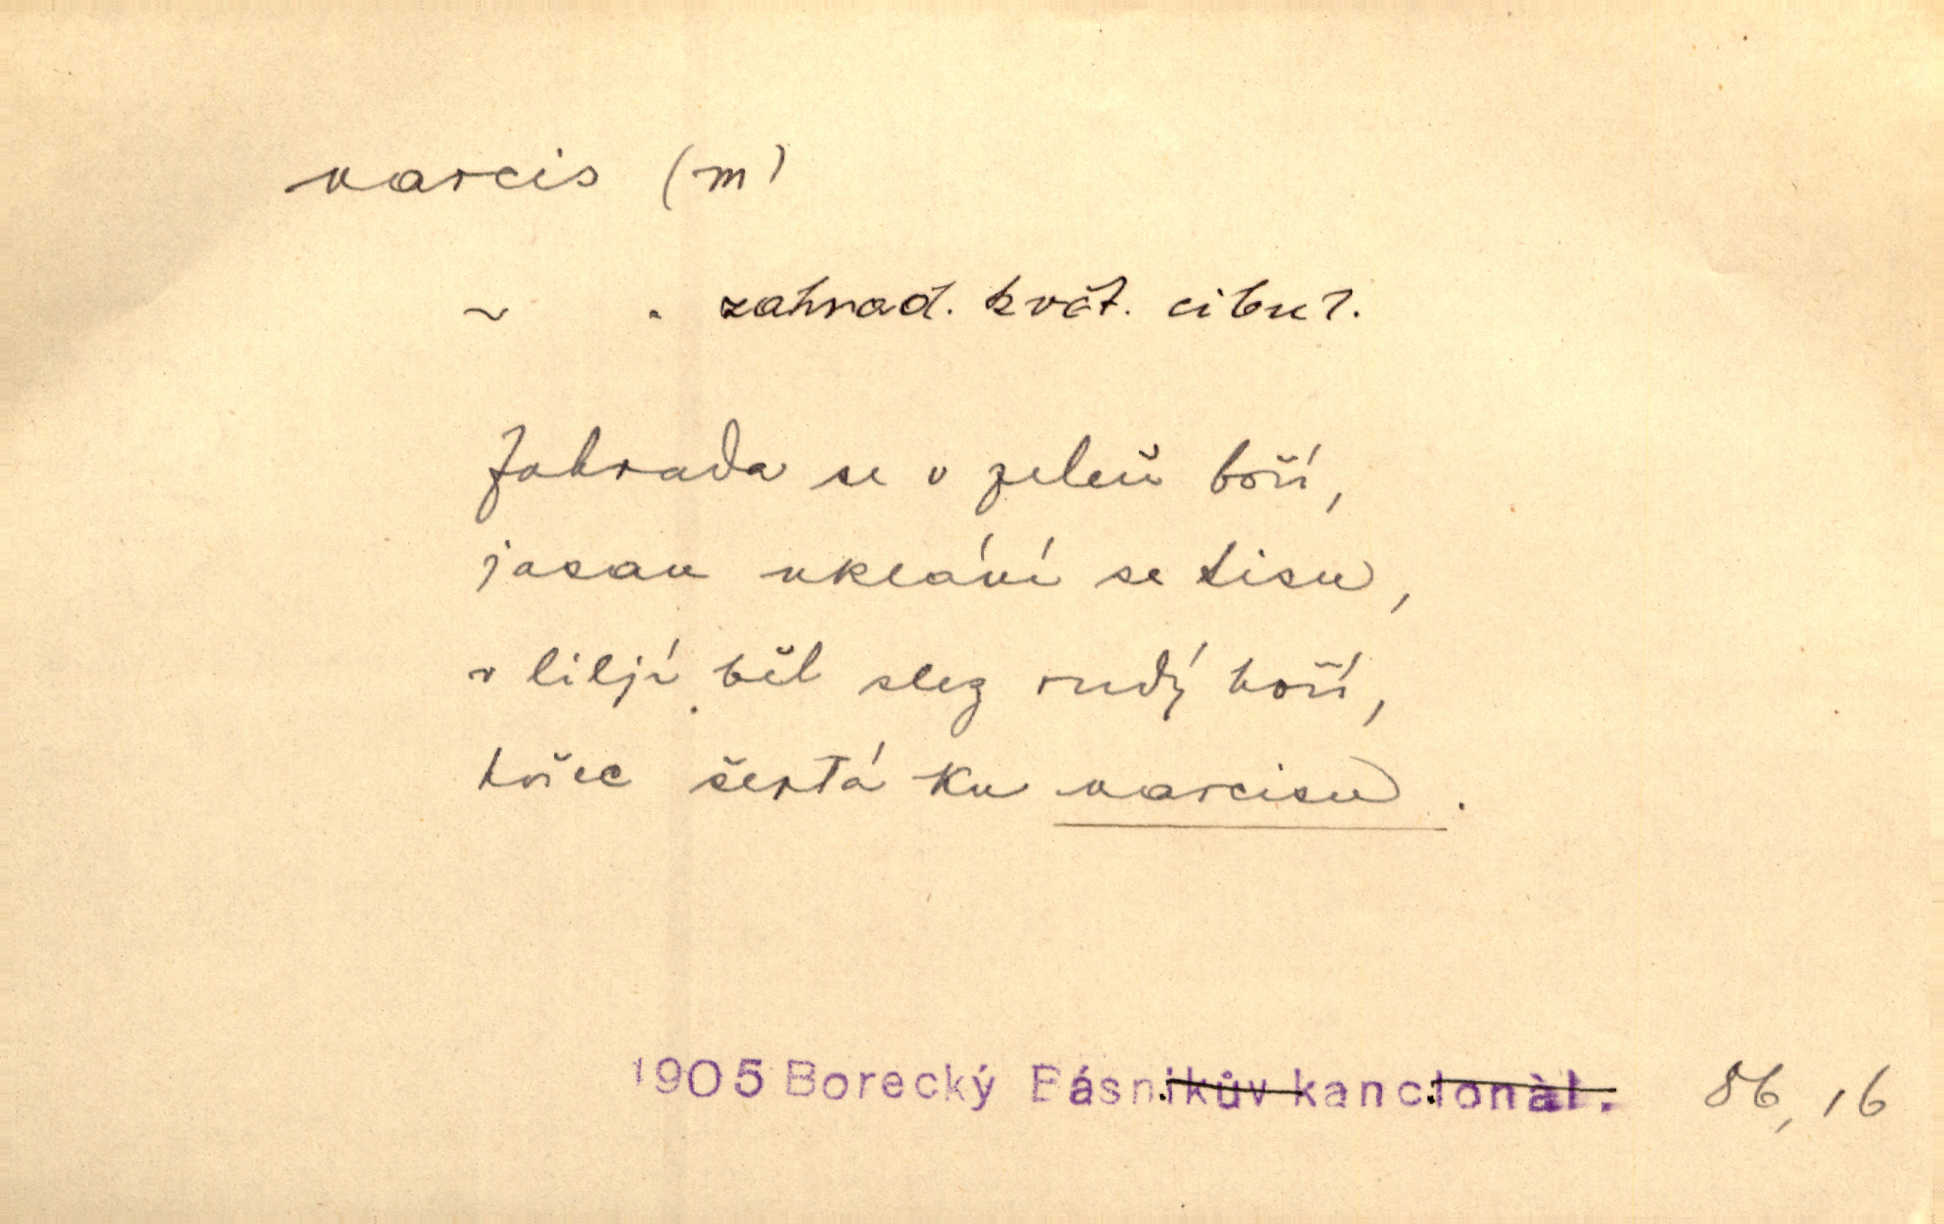 narcis (m)
~ . zahrad. květ. cibul.
Zahrada se v zeleň boří,
jasan uklání se tisu,
v liljí běl slez rudý hoří,
hořec šeptá ku narcisu.
1905 Borecký Básnikův kancionàl. 86, 16